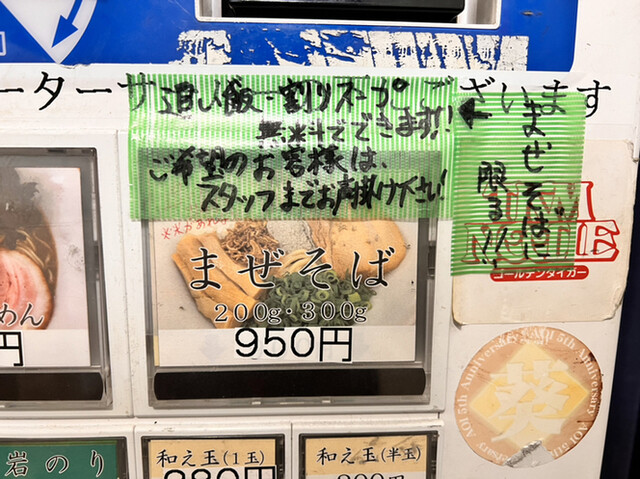 ーターサ
ございます
追い飯・割りスープ
無料でできます!!
ご希望のお客様は、
スタッフまでお声掛け下さい!
まぜそばに
限る!!
まぜそば
200g・300g
950円
めん
円
ゴールデンタイガー
AOI 5th Anniversary
葵
岩のり
和え玉(1玉)
和え玉(半玉)